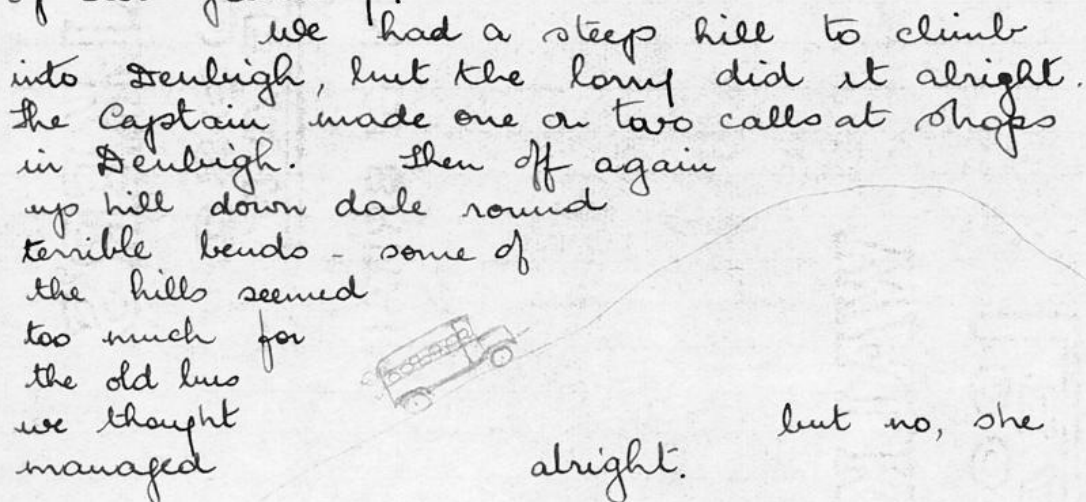 we had a steep hill to climb
into Denbigh, but the lorry did it alright.
The Captain made one or two calls at shops
in Denbigh. Then off again
up hill down dale round
terrible bends - some of
the hills seemed
too much for
the old bus
we thought but no, she
managed alright.